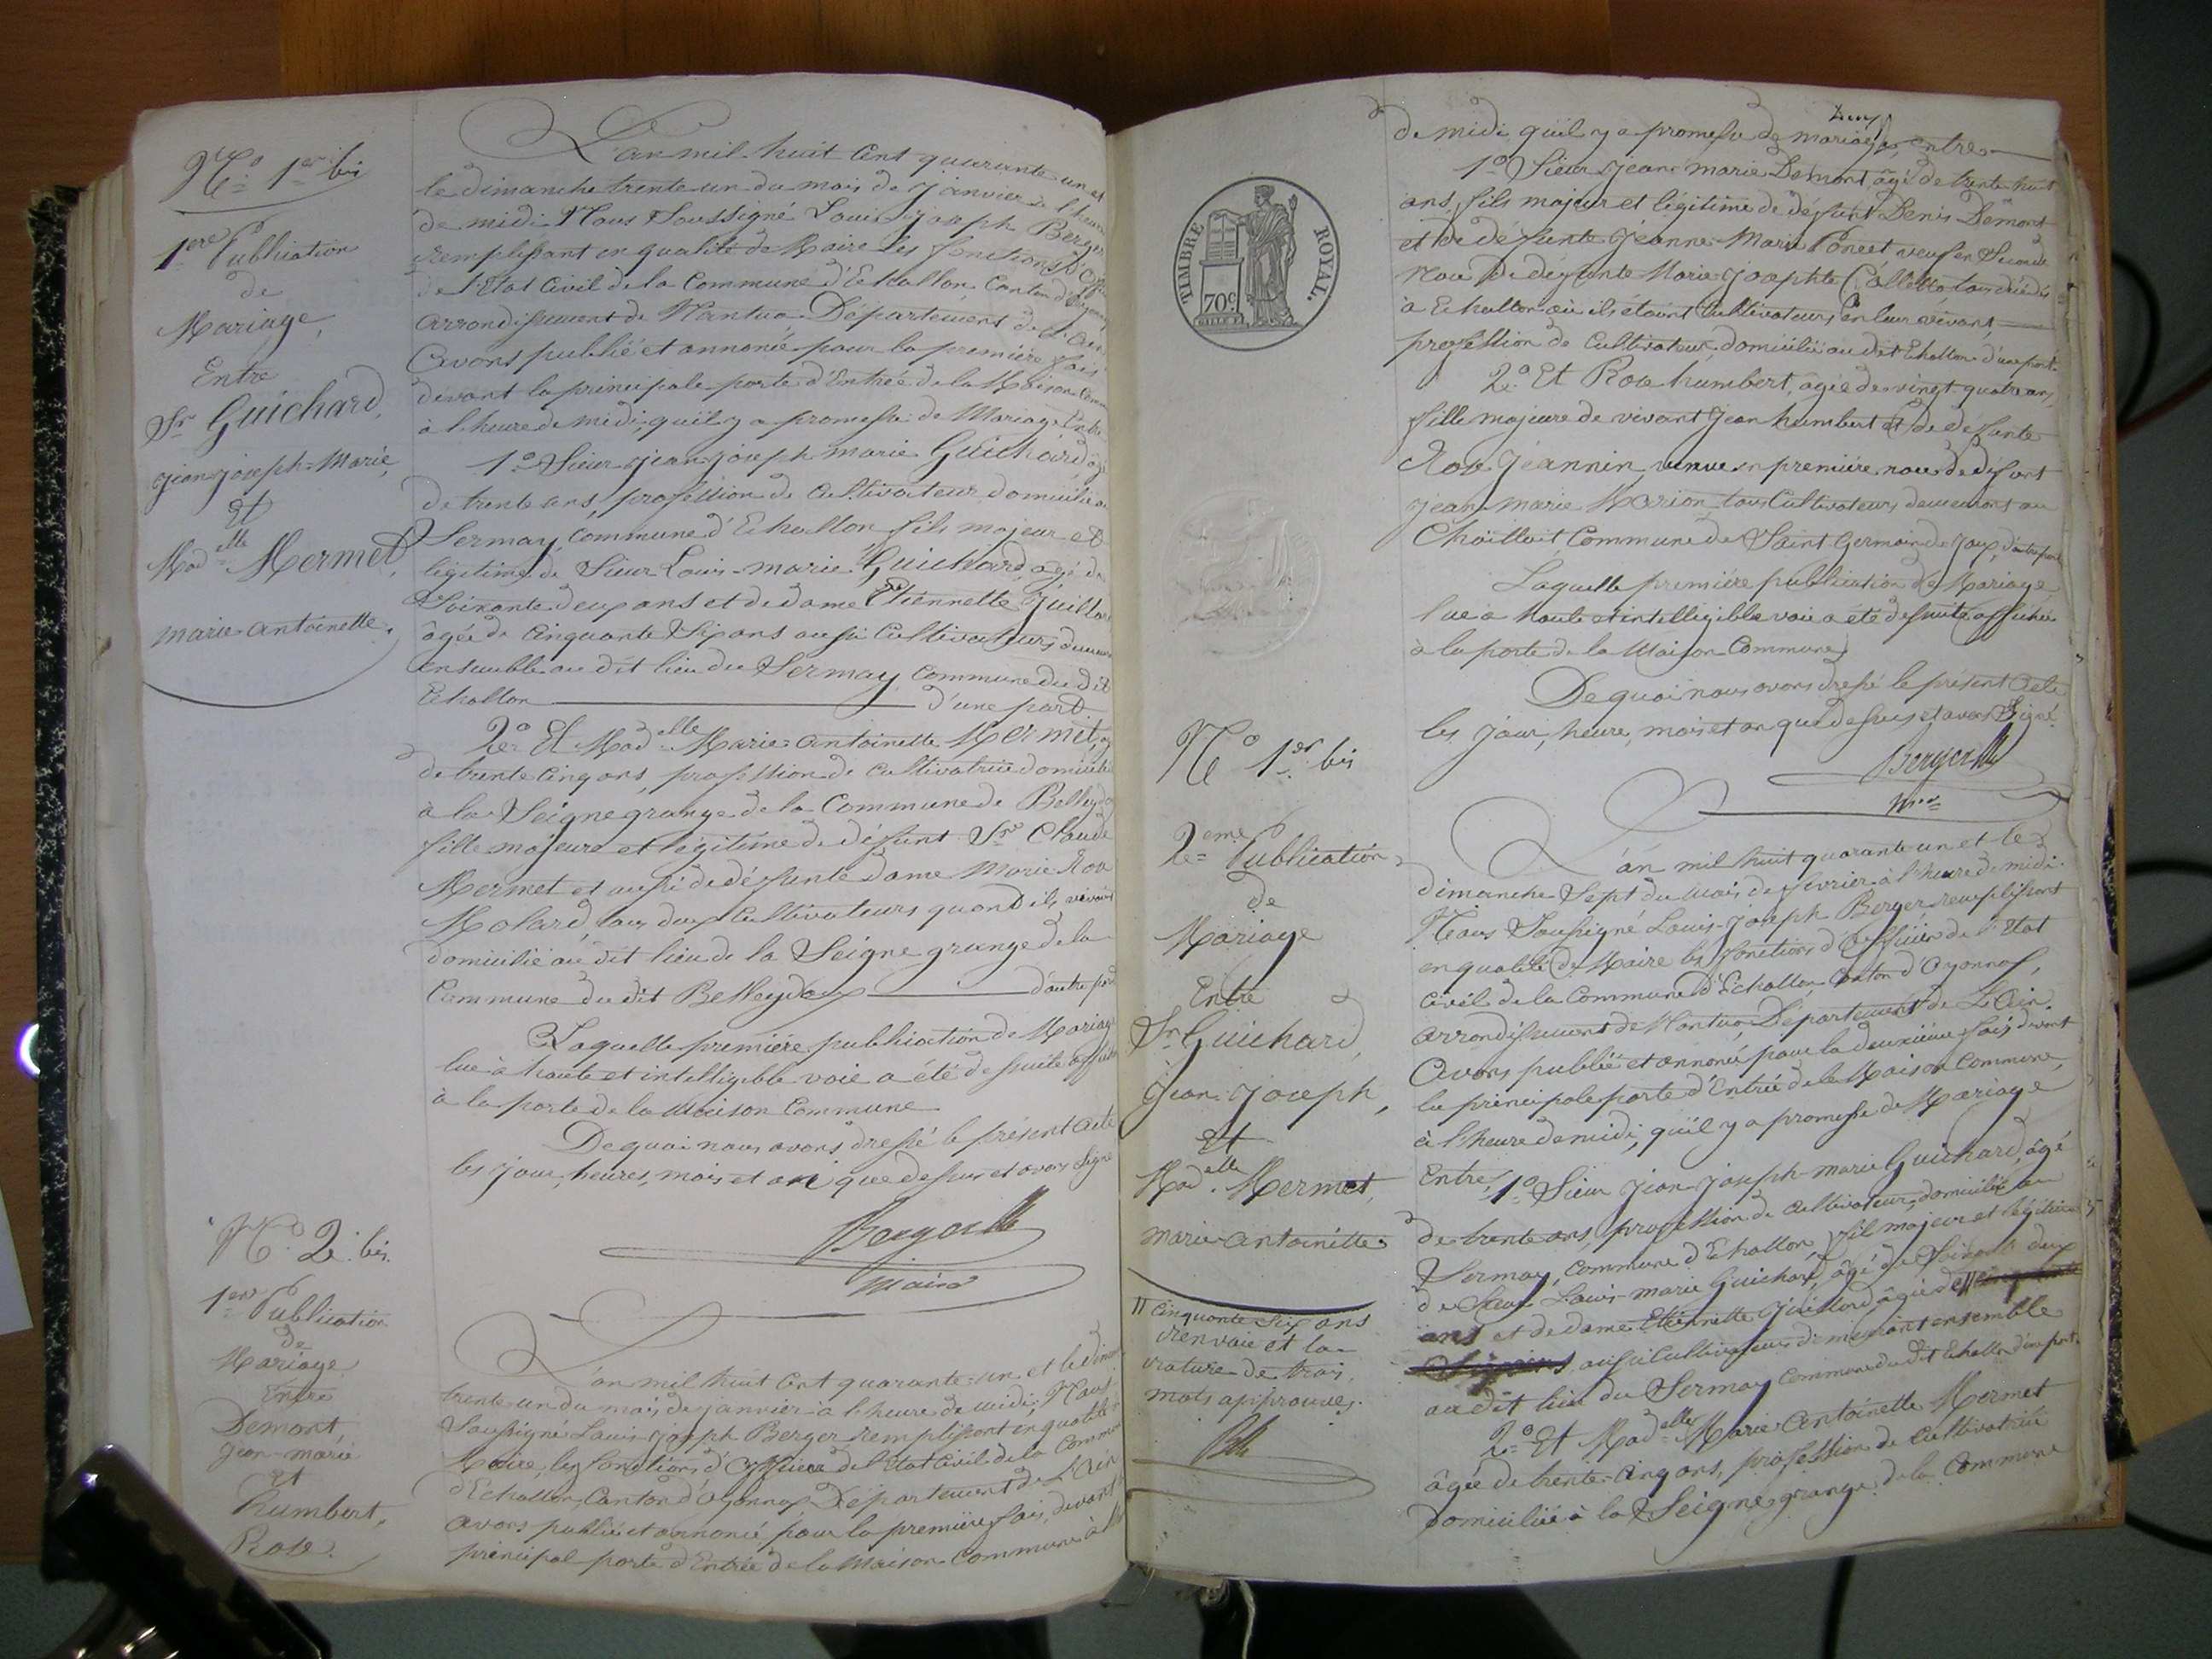 N.o 1er bis
1ère Publication
de
Mariage,
Entre
Sr Guichard,
jean joseph-Marie,
Et
Madelle Mermet,
marie antoinette.
L'an mil huit cent quarante un et
le dimanche trente un du mois de janvier à l'heure
de midi Nous Soussigné Louis joseph Berger
remplissant en qualité de Maire les fonctions d'
de l'Etat Civil de la Commune d'Echallon, Canton d'
arrondissement de Nantua Département de l'Ain
Avons publié et annoncé pour la première fois
devant la principale porte d'Entrée de la Maison
à l'heure de midi, qu'il y a promesse de Mariage Entre
1o Sieur jean joseph marie Guichard, âgé
de trente ans, profession de Cultivateur domicilié au
Sermay, Commune d'Echallon, fils majeur et
légitime de Sieur Louis-marie Guichard, agé de
Soixante deux ans et de dame Etiennette
âgée de Cinquante Six ans aussi Cultivateurs
ensemble au dit lieu du Sermay, Commune du dit
Echallon d'une part
2o Et Madelle Marie antoinette Mermet,
de trente cinq ans, profession de cultivatrice domiciliée
à la Seigne grange de la Commune de
fille majeure et légitime de défunt Sr Claude
Mermet et aussi de défunte dame Marie
Molard, tous deux Cultivateurs quand ils vivaient
domicilié au dit lieu de la Seigne grange de la
Commune du dit Belleydoux d'autre part
Laquelle première publication de Mariage
lue à haute et intelligible voie a été de suite
à la porte de la Maison Commune
De quoi nous avons dressé le présent acte
les jour, heures, mois et an que dessus et avons Signé
Maire
N.o 2e bis.
1ère Publication
de
Mariage
Entre
Demont,
jean-marie
et
humbert,
Rose.
L'an mil huit Cent quarante-un et le
trente un du mois de janvier à l'heure de midi, Nous
Soussigné Louis-joseph Berger remplissant en qualité de
Maire, les fonctions d'Officier de l'Etat Civil de la
d'Echallon, Canton d'Oyonnax Département de L'Ain
avons publié et annoncé pour la première fois, devant
principal porte d'Entrée de la Maison Commune à
de midi qu'il y a promesse de mariage, entre
TIMBRE ROYAL.
70c
1o Sieur jean marie Demont, âgé de trente huit
ans, fils majeur et légitime de défunt Denis Demont
et de défunte jeanne-Marie Poncet veuf en Seconde
Noce de défunte Marie josephte
à Echallon où ils étaient Cultivateurs en leur vivant,
profession de Cultivateur, domicilié au dit Echallon d'une part.
2o Et Rose humbert, âgée de vingt quatre ans,
fille majeure de vivant jean humbert et de défunte
Rose jeannin, venue en première noce de défunt
jean marie Marion, tous Cultivateurs demeurant au
Commune de Saint Germain de joux, d'autre part
Laquelle première publication de Mariage
lue à haute et intelligible voie a été de suite affichée
à la porte de la Maison Commune.
De quoi nous avons dressé le présent acte
les jour, heure, mois et an que dessus et avons Signé
N.o 1er bis
2eme Publication
de
Mariage
Entre
Sr Guichard,
jean joseph,
Et
Madelle Mermet,
marie-antoinette
L'an mil huit quarante un et le
dimanche Sept du mois de février à l'heure de midi.
Nous Soussigné Louis-joseph Berger remplissant
en qualité de Maire les fonctions d'Officier de l'Etat
Civil de la Commune d'Echallon, Canton d'Oyonnax,
arrondissement de Nantua, Département de L'Ain.
Avons publié et annoncé pour la deuxième fois, devant
la principale porte d'Entrée de la Maison Commune,
à l'heure de midi, qu'il y a promesse de Mariage
Entre, 1o Sieur jean-joseph-marie Guichard, âgé
de trente ans, profession de Cultivateur, domicilié au
Sermay, Commune d'Echallon, fil majeur et légitime
de Sieur Louis-marie Guichard, âgé de Soixante deux
ans et de dame Etiennette âgée de
aussi Cultivateurs demeurant ensemble
au dit lieu du Sermay Commune du dit Echallon d'une part.
2o Et Madelle Marie antoinette Mermet
âgée de trente-cinq ans, profession de Cultivatrice
domiciliée à la Seigne grange de la Commune
Cinquante Six ans
renvoie et la
rature de trois
mots approuvés.